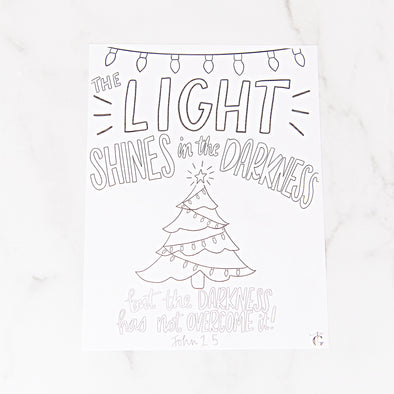 THE
LIGHT
SHINES in the DARKNESS
but the DARKNESS
has not OVERCOME it!
John 1:5